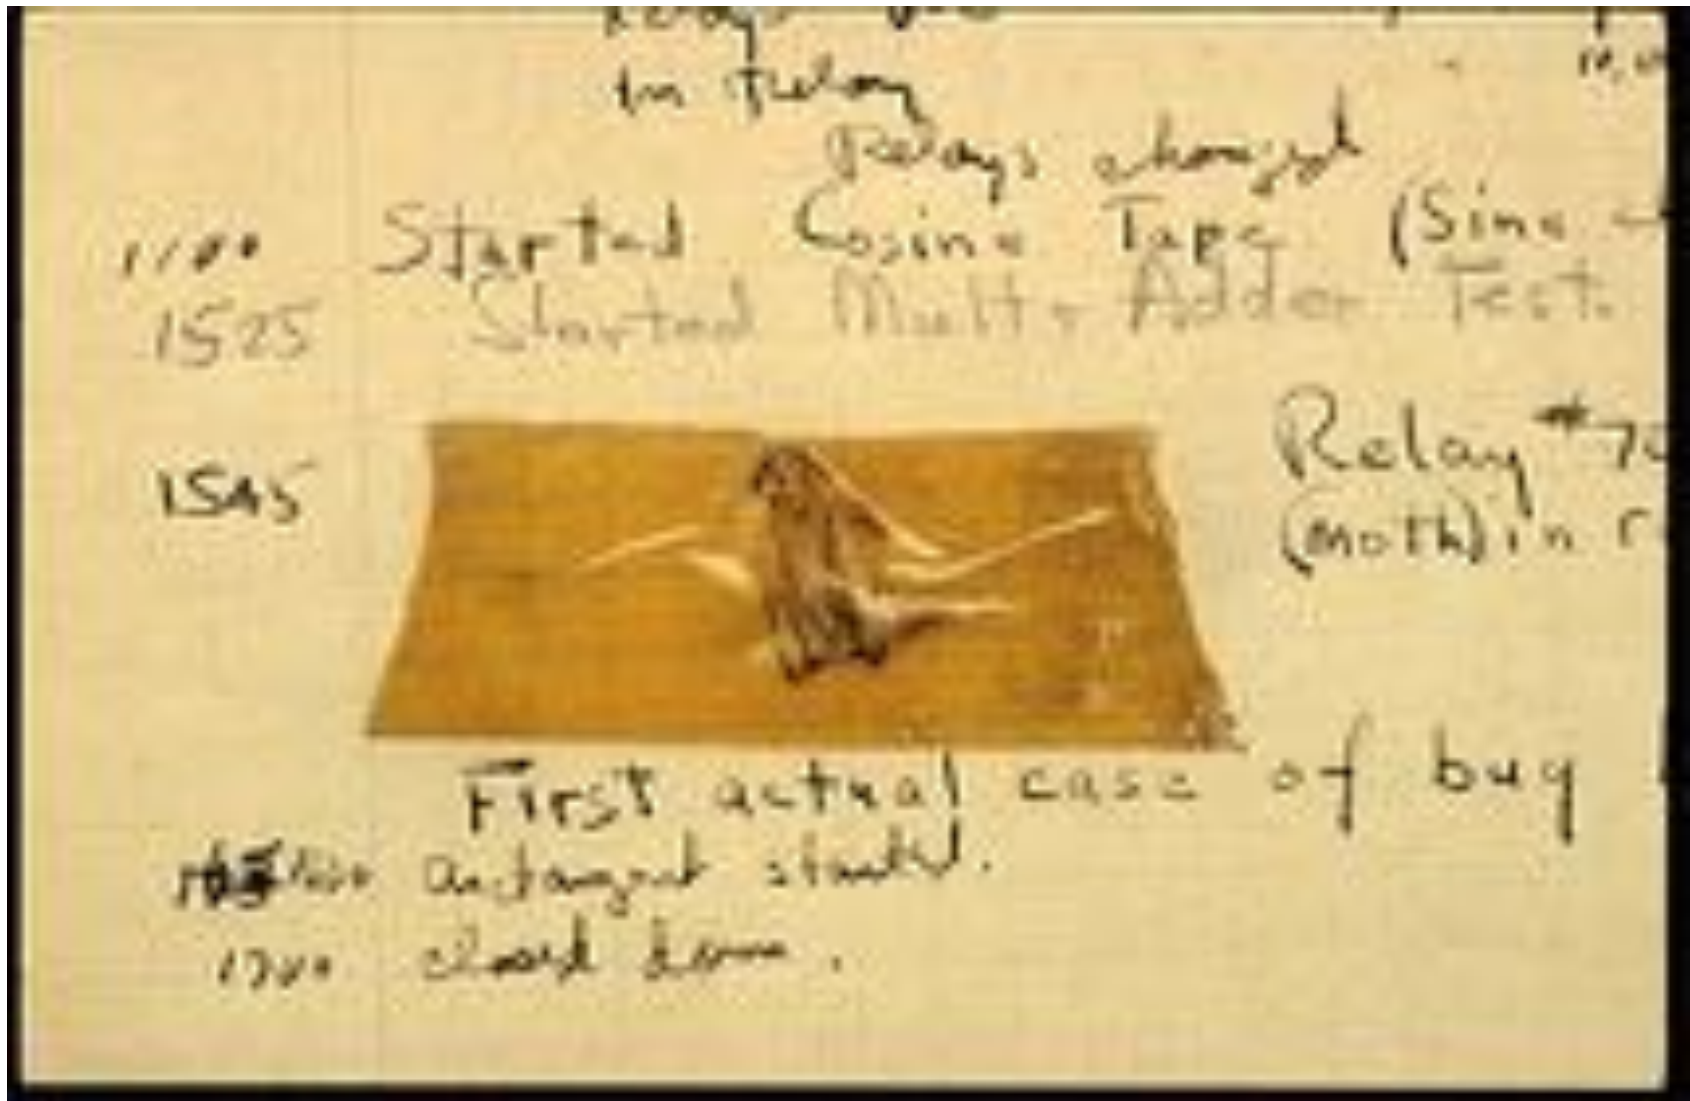 in relay
Relays changed
1100 Started Cosine Tape (Sine
1525 Started Mult + Adder Test
1545 Relay #70
(moth) in r
First actual case of bug
arctangent started.
1700 closed down.